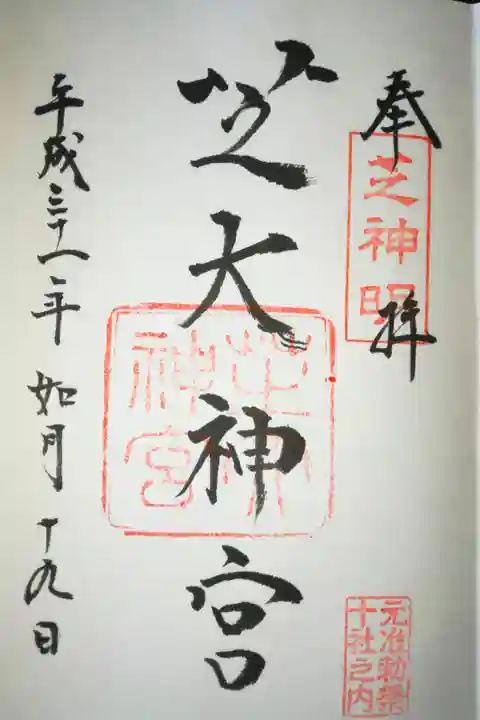 奉拝
芝神明
元准勅祭
十社之内
芝大神宮
芝大
神宮
平成三十一年如月十九日